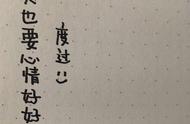 也要心情好好
度过:)